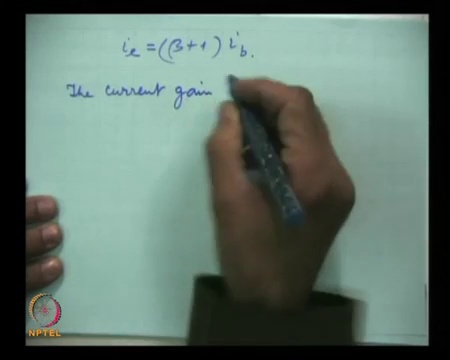 i_e = (β+1) i_b.
The current gain
NPTEL